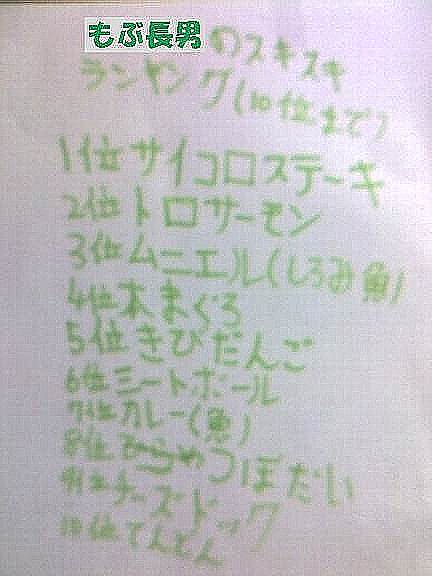 もぶ長男のスキスキ
ランキング(10位まで)
1位 サイコロステーキ
2位 トロサーモン
3位 ムニエル(しろみ魚)
4位 本まぐろ
5位 きびだんご
6位 ミートボール
7位 カレー(魚)
8位 つぼだい
9位 チーズドック
10位 てんどん